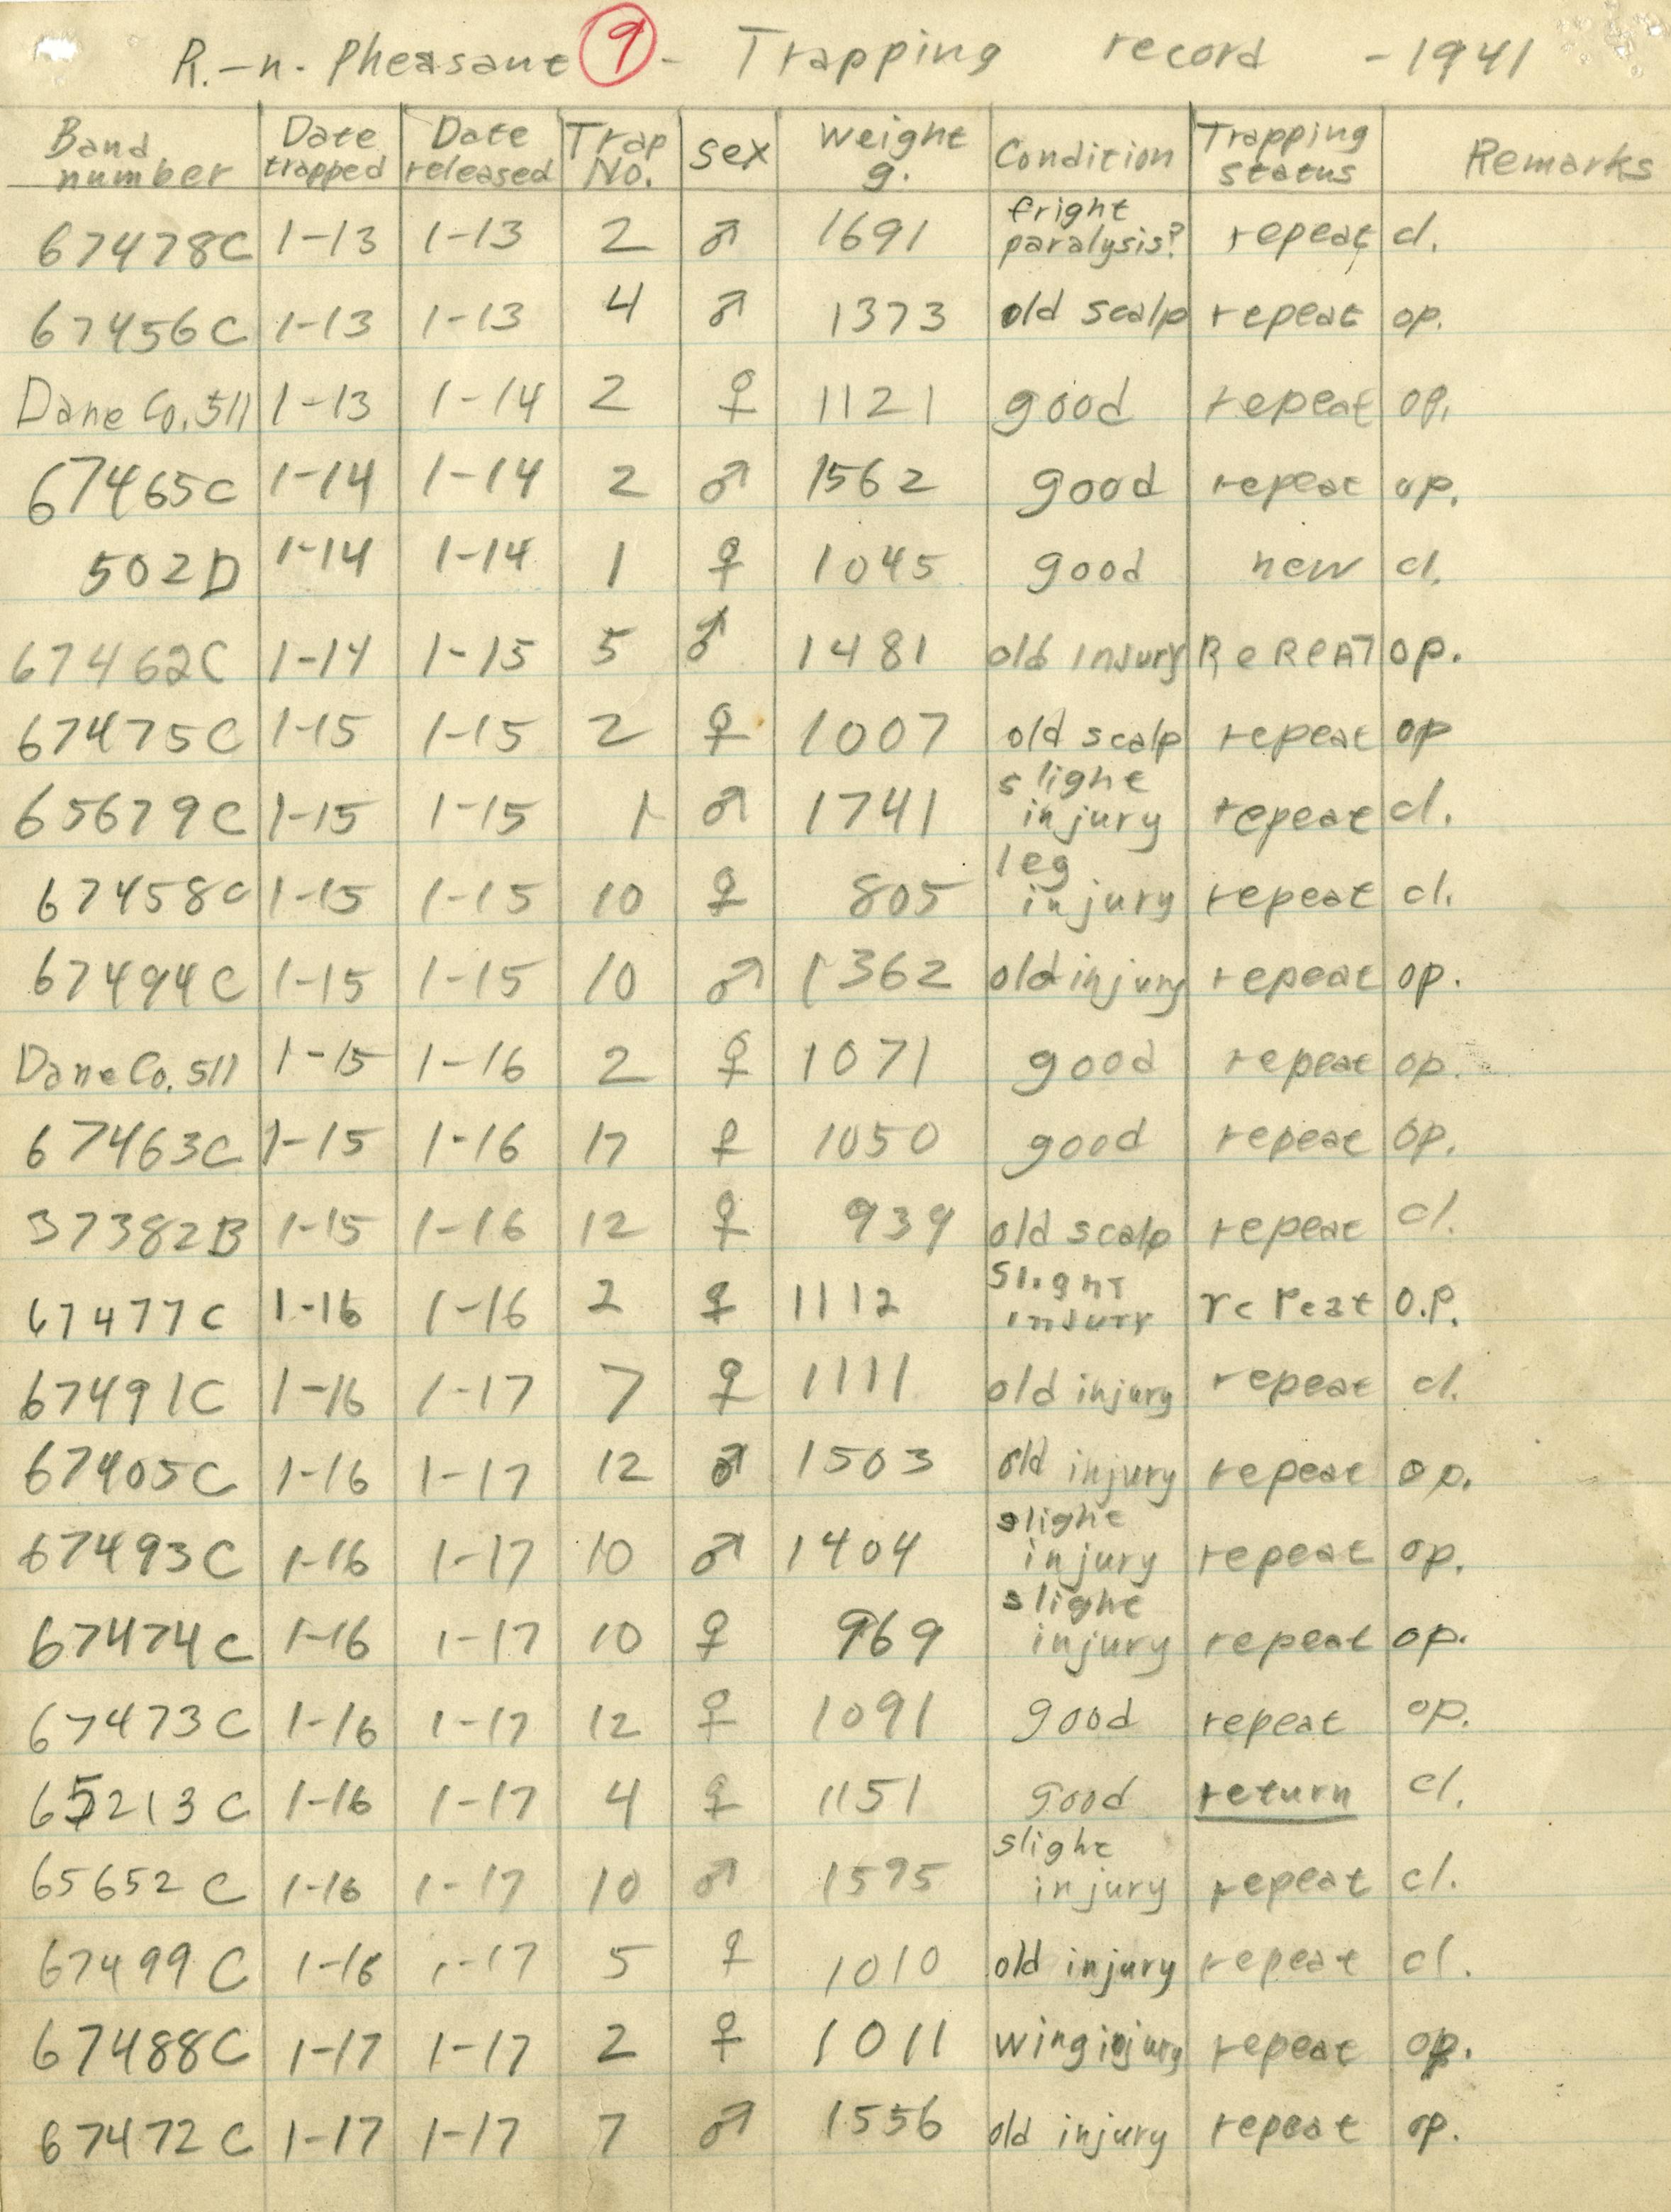 R.-n. Pheasant 9 - Trapping record - 1941
Band number Date trapped Date released Trap No. sex Weight g. Condition Trapping status Remarks
67478C 1-13 1-13 2 ♂ 1691 fright paralysis? repeat cl.
67456C 1-13 1-13 4 ♂ 1373 old scalp repeat op.
Dane Co. 511 1-13 1-14 2 ♀ 1121 good repeat op.
67465C 1-14 1-14 2 ♂ 1562 good repeat op.
502D 1-14 1-14 1 ♀ 1045 good new cl.
67462C 1-14 1-15 5 ♂ 1481 old injury RePEAT op.
67475C 1-15 1-15 2 ♀ 1007 old scalp repeat op
65679C 1-15 1-15 1 ♂ 1741 slight injury repeat cl.
67458C 1-15 1-15 10 ♀ 805 leg injury repeat cl.
67494C 1-15 1-15 10 ♂ 1362 old injury repeat op.
Dane Co. 511 1-15 1-16 2 ♀ 1071 good repeat op.
67463C 1-15 1-16 17 ♀ 1050 good repeat op.
37382B 1-15 1-16 12 ♀ 939 old scalp repeat cl.
67477C 1-16 1-16 2 ♀ 1112 slight injury repeat o.p.
67491C 1-16 1-17 7 ♀ 1111 old injury repeat cl.
67405C 1-16 1-17 12 ♂ 1503 old injury repeat op.
67493C 1-16 1-17 10 ♂ 1404 slight injury repeat op.
67474C 1-16 1-17 10 ♀ 969 slight injury repeat op.
67473C 1-16 1-17 12 ♀ 1091 good repeat op.
65213C 1-16 1-17 4 ♀ 1151 good return cl.
65652C 1-16 1-17 10 ♂ 1595 slight injury repeat cl.
67499C 1-16 1-17 5 ♀ 1010 old injury repeat cl.
67488C 1-17 1-17 2 ♀ 1011 wing injury repeat op.
67472C 1-17 1-17 7 ♂ 1556 old injury repeat op.